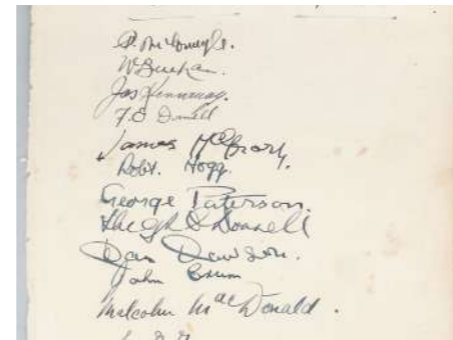 P. McGonagle.
W Buchan.
Jas Kennaway.
F.O Donnell
James McGrory.
Robt. Hogg.
George Paterson.
Hugh O Donnell
Dan Dawson.
John Crum
Malcolm MacDonald.